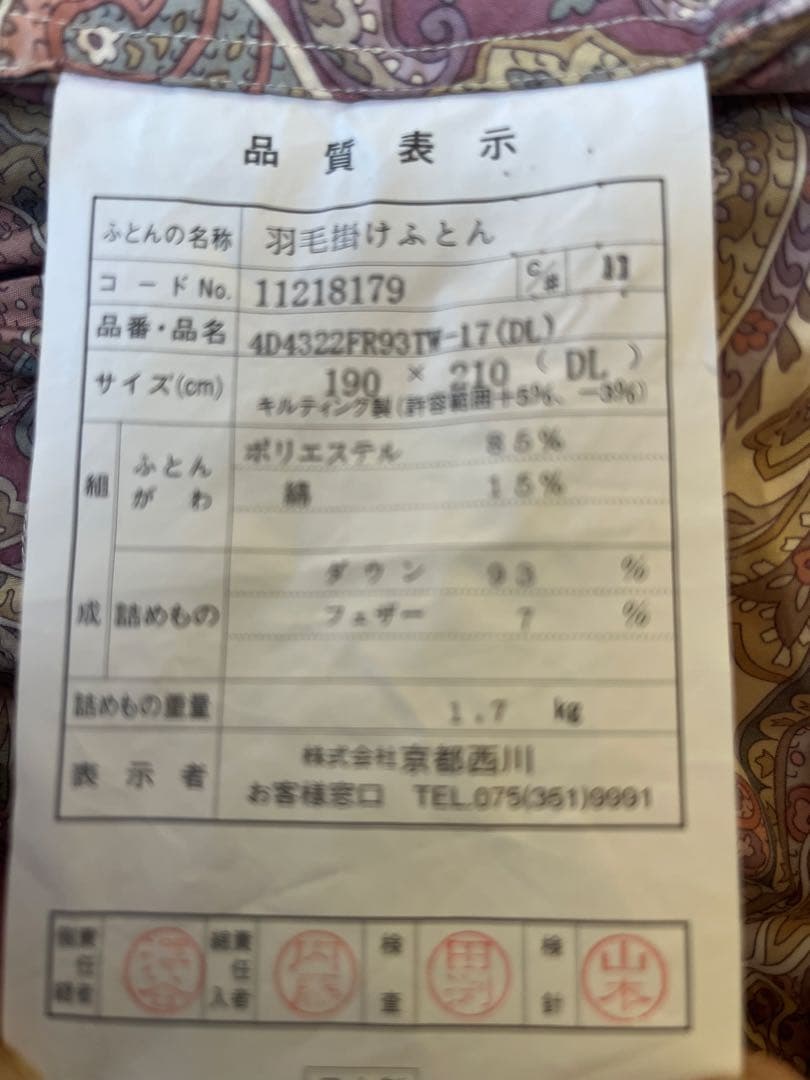 品質表示
ふとんの名称 羽毛掛けふとん
コードNo. 11218179 C/#
品番・品名 4D4322FR93TW-17(DL)
サイズ(cm) 190 × 210 (DL)
キルティング製(許容範囲+5%、-3%)
組成 ふとんがわ ポリエステル 85%
綿 15%
詰めもの ダウン 93 %
フェザー 7 %
詰めもの重量 1.7 kg
表示者 株式会社京都西川
お客様窓口 TEL.075(361)9991
責任者 責任者 検査 検針
内藤 山本